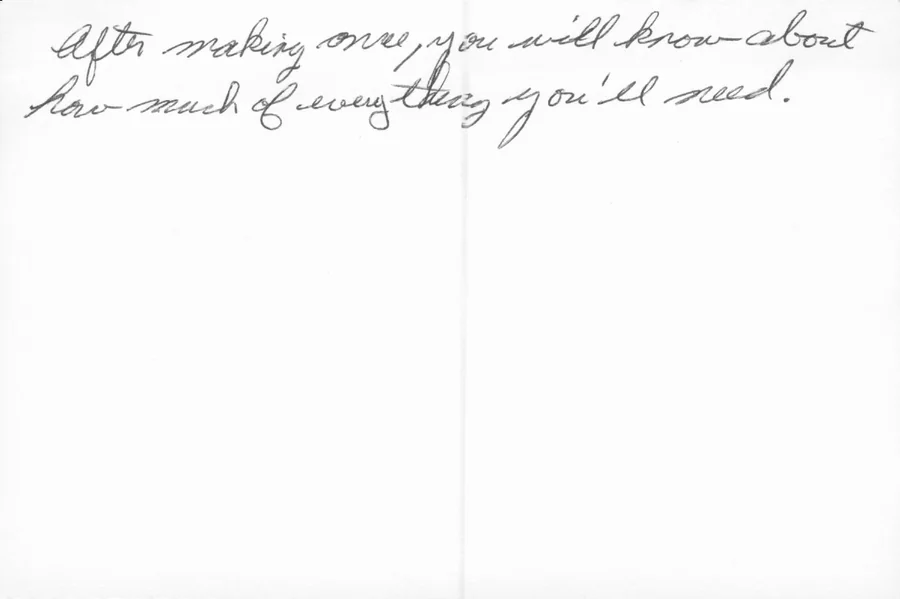 After making once, you will know about
how much of everything you'll need.